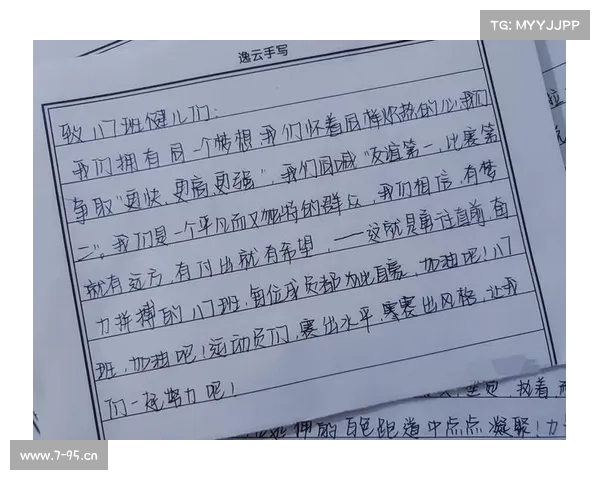 TG: MYYJJPP
逸云手写
致八班健儿们：
我们拥有同一个梦想，我们怀着同样炽热的心，我们
争取“更快、更高、更强”，我们同喊“友谊第一，比赛第
二”。我们是一个平凡而又独特的群众，我们相信，有梦
就有远方，有付出就有希望，——这就是勇往直前，奋
力拼搏的八班，每位成员都为此自豪，加油吧！八
班，加油吧！运动员们，赛出水平，赛出风格，让我
们一起努力吧！
执着，
的白色跑道中点点凝聚！力
www.7-95.cn